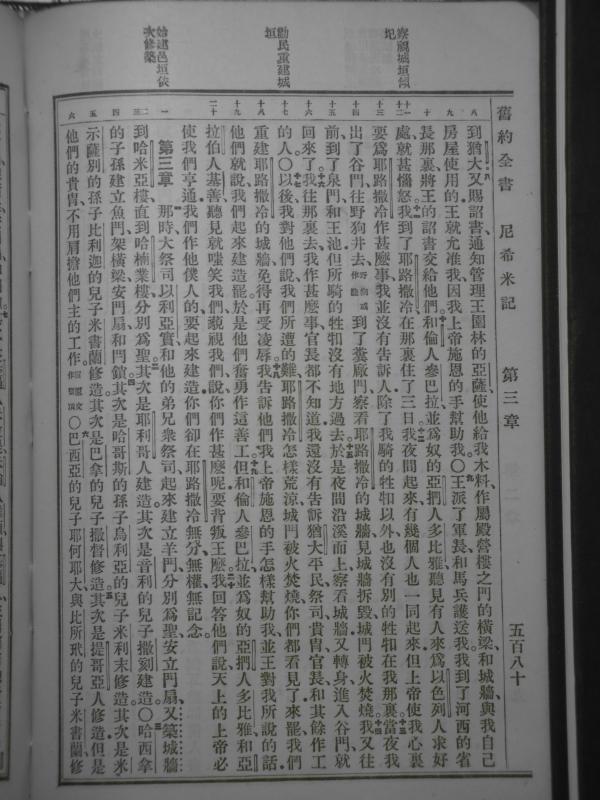 舊約全書 尼希米記 第三章 五百八十
察視城垣傾
圮
勸民重建城
垣
始建邑垣依
次修築
到猶大又賜詔書通知管理王園林的亞薩使他給我木料作屬殿營樓之門的橫梁和城牆與我自己
房屋使用的王就允准我因我上帝施恩的手幫助我〇王派了軍長和馬兵護送我我到了河西的省
長那裏將王的詔書交給他們和倫人參巴拉並為奴的亞捫人多比雅聽見有人來為以色列人求好
處就甚惱怒我到了耶路撒冷在那裏住了三日我夜間起來有幾個人也一同起來但上帝使我心裏
要為耶路撒冷作甚麽事我並沒有告訴人除了我騎的牲牷以外也沒有別的牲牷在我那裏當夜我
出了谷門往野狗井去野狗或作龍到了糞廠門察看耶路撒冷的城牆見城牆拆毀城門被火焚燒我又往
前到了泉門和王池但所騎的牲牷沒有地方過去於是夜間沿溪而上察看城牆又轉身進入谷門就
回來了我往那裏去我作甚麽事官長都不知道我還沒有告訴猶大平民祭司貴冑官長和其餘作工
的人〇以後我對他們說我們所遭的難耶路撒冷怎樣荒涼城門被火焚燒你們都看見了來罷我們
重建耶路撒冷的城牆免得再受凌辱我告訴他們我上帝施恩的手怎樣幫助我並王對我所說的話
他們就說我們起來建造罷於是他們奮勇作這善工但和倫人參巴拉並為奴的亞捫人多比雅和亞
拉伯人基善聽見就嗤笑我們藐視我們說你們作甚麽呢要背叛王麽我回答他們說天上的上帝必
使我們亨通我們作他僕人的要起來建造你們卻在耶路撒冷無分無權無記念
第三章 那時大祭司以利亞實和他的弟兄衆祭司起來建立羊門分別為聖安立門扇又築城牆
到哈米亞樓直到哈楠業樓分別為聖其次是耶利哥人建造其次是音利的兒子撒刻建造〇哈西拿
的子孫建立魚門架橫梁安門扇和閂鎖其次是哈哥斯的孫子烏利亞的兒子米利末修造其次是米
示薩別的孫子比利迦的兒子米書蘭修造其次是巴拿的兒子撒督修造其次是提哥亞人修造但是
他們的貴冑不用肩擔他們主的工作〇巴西亞的兒子耶何耶大與比所玳的兒子米書蘭修